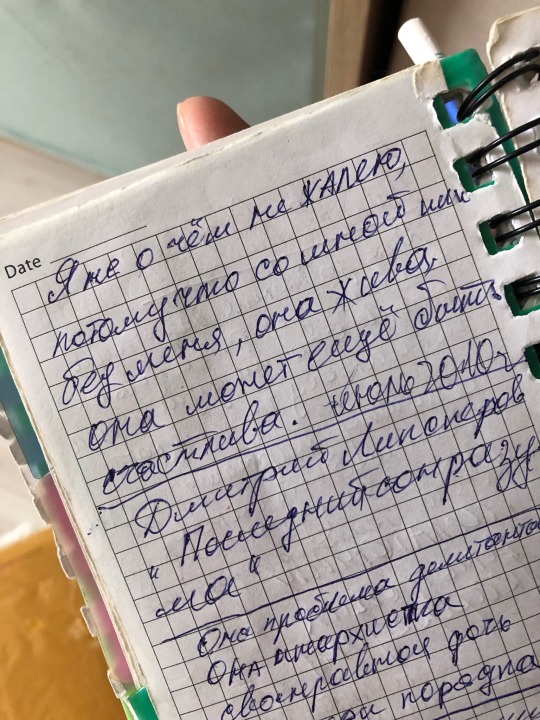 Date
Я не о чём не жалею,
потому что со мной или
без меня, она жива,
она может ещё быть
счастлива. июль 2010г
Дмитрий Липскеров
"Последний сон разу
ма"
Она проблема
она анархистка
своенравная дочь